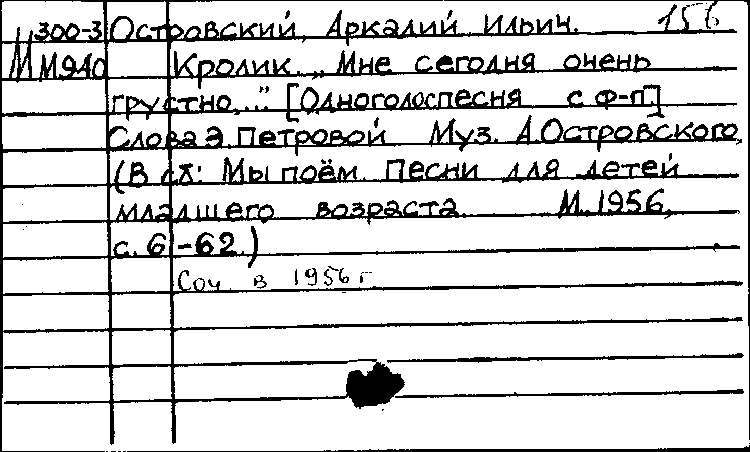 300-3 Островский, Аркадий Ильич. 156
М М940 Кролик. „Мне сегодня очень
грустно,.." [Одноголос песня с ф-п.]
Слова Э. Петровой Муз. А. Островского.
(В сб: Мы поём. Песни для детей
младшего возраста. М. 1956,
с. 61-62.)
Соч. в 1956 г